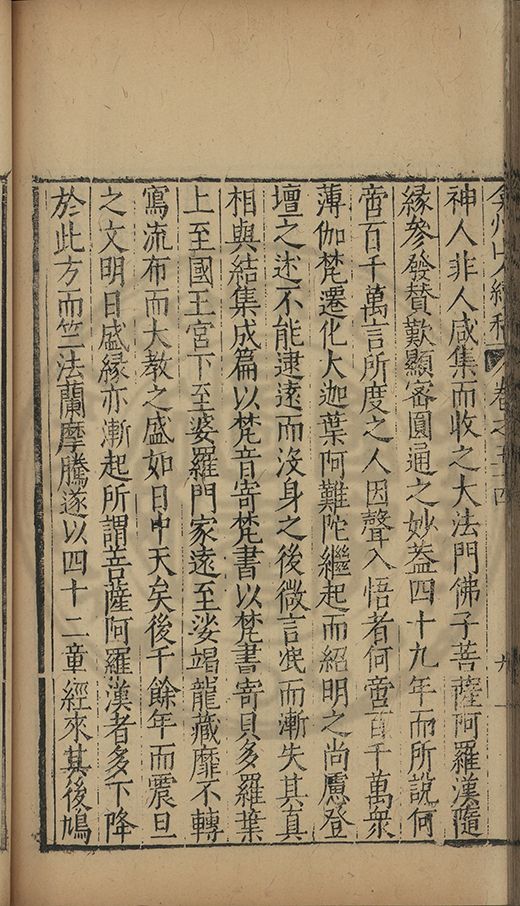 弇州山人續稿 卷之五十四 九
神人非人咸集而收之大法門佛子菩薩阿羅漢隨
緣參發賛歎顯密圓通之妙蓋四十九年而所說何
啻百千萬言所度之人因聲入悟者何啻百千萬衆
薄伽梵遷化大迦葉阿難陀繼起而紹明之尚慮登
壇之述不能逮遠而沒身之後微言泯而漸失其真
相與結集成篇以梵音寄梵書以梵書寄貝多羅葉
上至國王宮下至婆羅門家遠至娑竭龍藏靡不轉
寫流布而大教之盛如日中天矣後千餘年而震旦
之文明日盛緣亦漸起所謂菩薩阿羅漢者多下降
於此方而竺法蘭摩騰遂以四十二童經來其後鳩